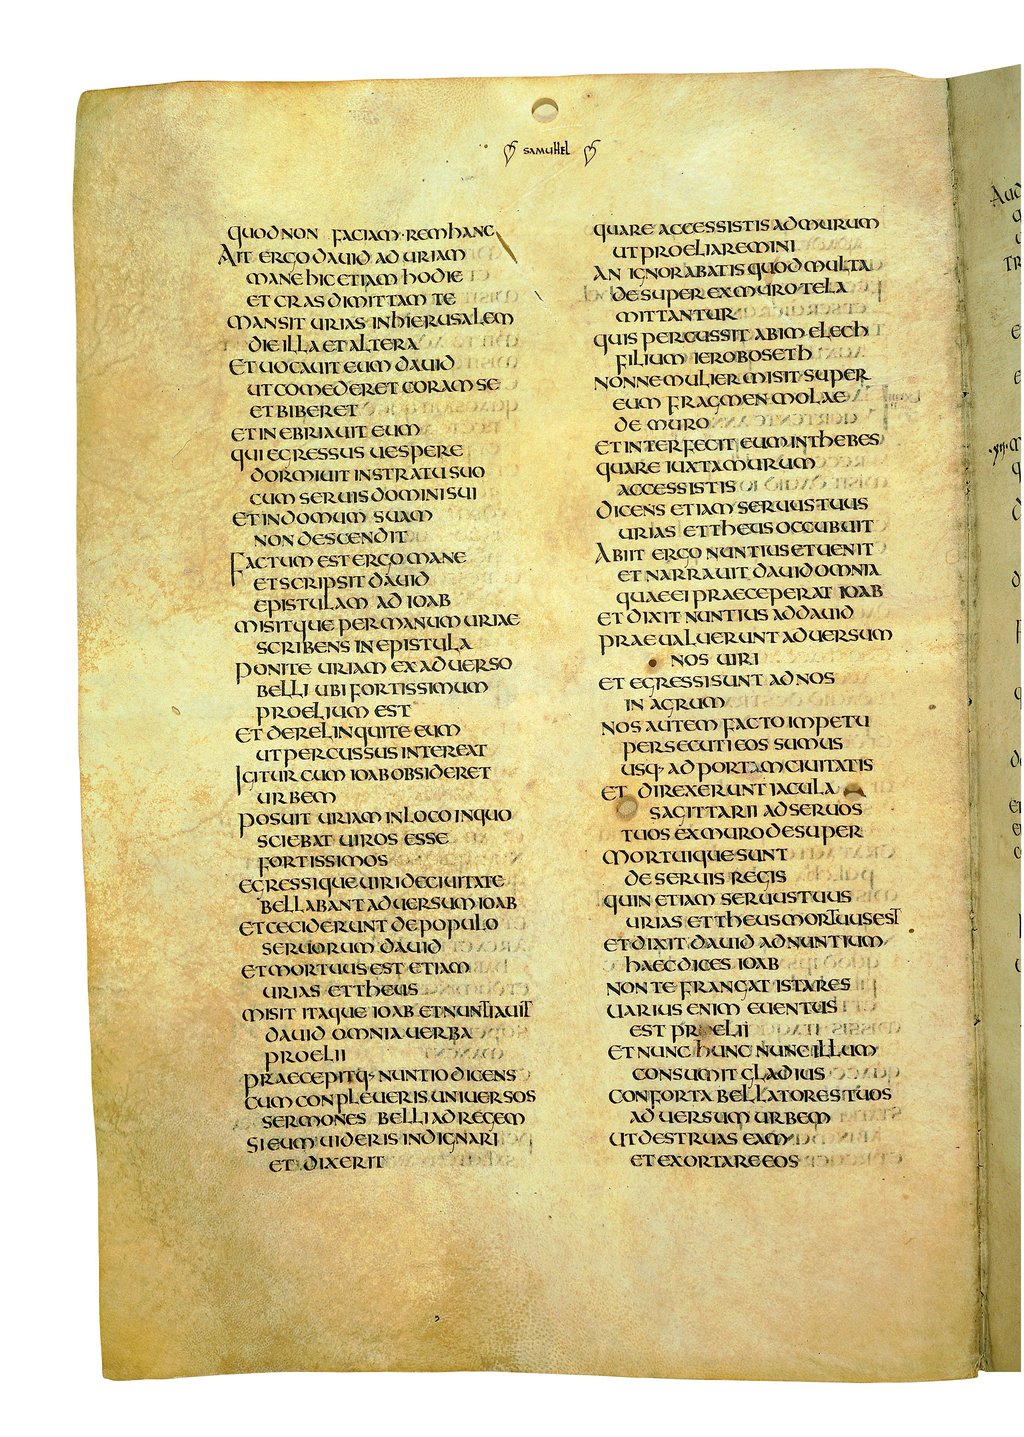 SAMUHEL
QUOD NON FACIAM · REM HANC
AIT ERGO DAUID AD URIAM
MANE HIC ETIAM HODIE
ET CRAS DIMITTAM TE
MANSIT URIAS IN HIERUSALEM
DIE ILLA ET ALTERA
ET UOCAUIT EUM DAUID
UT COMEDERET CORAM SE
ET BIBERET
ET INEBRIAUIT EUM
QUI EGRESSUS UESPERE
DORMIUIT IN STRATU SUO
CUM SERUIS DOMINI SUI
ET IN DOMUM SUAM
NON DESCENDIT
FACTUM EST ERGO MANE
ET SCRIPSIT DAUID
EPISTULAM AD IOAB
MISITQUE PER MANUM URIAE
SCRIBENS IN EPISTULA
PONITE URIAM EX ADUERSO
BELLI UBI FORTISSIMUM
PROELIUM EST
ET DERELINQUITE EUM
UT PERCUSSUS INTEREAT
IGITUR CUM IOAB OBSIDERET
URBEM
POSUIT URIAM IN LOCO IN QUO
SCIEBAT UIROS ESSE
FORTISSIMOS
EGRESSIQUE UIRI DE CIUITATE
BELLABANT ADUERSUM IOAB
ET CECIDERUNT DE POPULO
SERUORUM DAUID
ET MORTUUS EST ETIAM
URIAS ETTHEUS
MISIT ITAQUE IOAB ET NUNTIAUIT
DAUID OMNIA UERBA
PROELII
PRAECEPITQ· NUNTIO DICENS
CUM CONPLEUERIS UNIUERSOS
SERMONES BELLI AD REGEM
SI EUM UIDERIS INDIGNARI
ET DIXERIT
QUARE ACCESSISTIS AD MURUM
UT PROELIAREMINI
AN IGNORABATIS QUOD MULTA
DESUPER EX MURO TELA
MITTANTUR
QUIS PERCUSSIT ABIMELECH
FILIUM IEROBOSETH
NONNE MULIER MISIT SUPER
EUM FRAGMEN MOLAE
DE MURO
ET INTERFECIT EUM IN THEBES
QUARE IUXTA MURUM
ACCESSISTIS
DICENS ETIAM SERUUS TUUS
URIAS ETTHEUS OCCUBUIT
ABIIT ERGO NUNTIUS ET UENIT
ET NARRAUIT DAUID OMNIA
QUAE EI PRAECEPERAT IOAB
ET DIXIT NUNTIUS AD DAUID
PRAEUALUERUNT ADUERSUM
NOS UIRI
ET EGRESSI SUNT AD NOS
IN AGRUM
NOS AUTEM FACTO IMPETU
PERSECUTI EOS SUMUS
USQ· AD PORTAM CIUITATIS
ET DIREXERUNT IACULA
SAGITTARII AD SERUOS
TUOS EX MURO DESUPER
MORTUIQUE SUNT
DE SERUIS REGIS
QUIN ETIAM SERUUS TUUS
URIAS ETTHEUS MORTUUS EST
ET DIXIT DAUID AD NUNTIUM
HAEC DICES IOAB
NON TE FRANGAT ISTA RES
UARIUS ENIM EUENTUS
EST PROELII
ET NUNC HUNC NUNC ILLUM
CONSUMIT GLADIUS
CONFORTA BELLATORES TUOS
ADUERSUM URBEM
UT DESTRUAS EAM
ET EXORTARE EOS